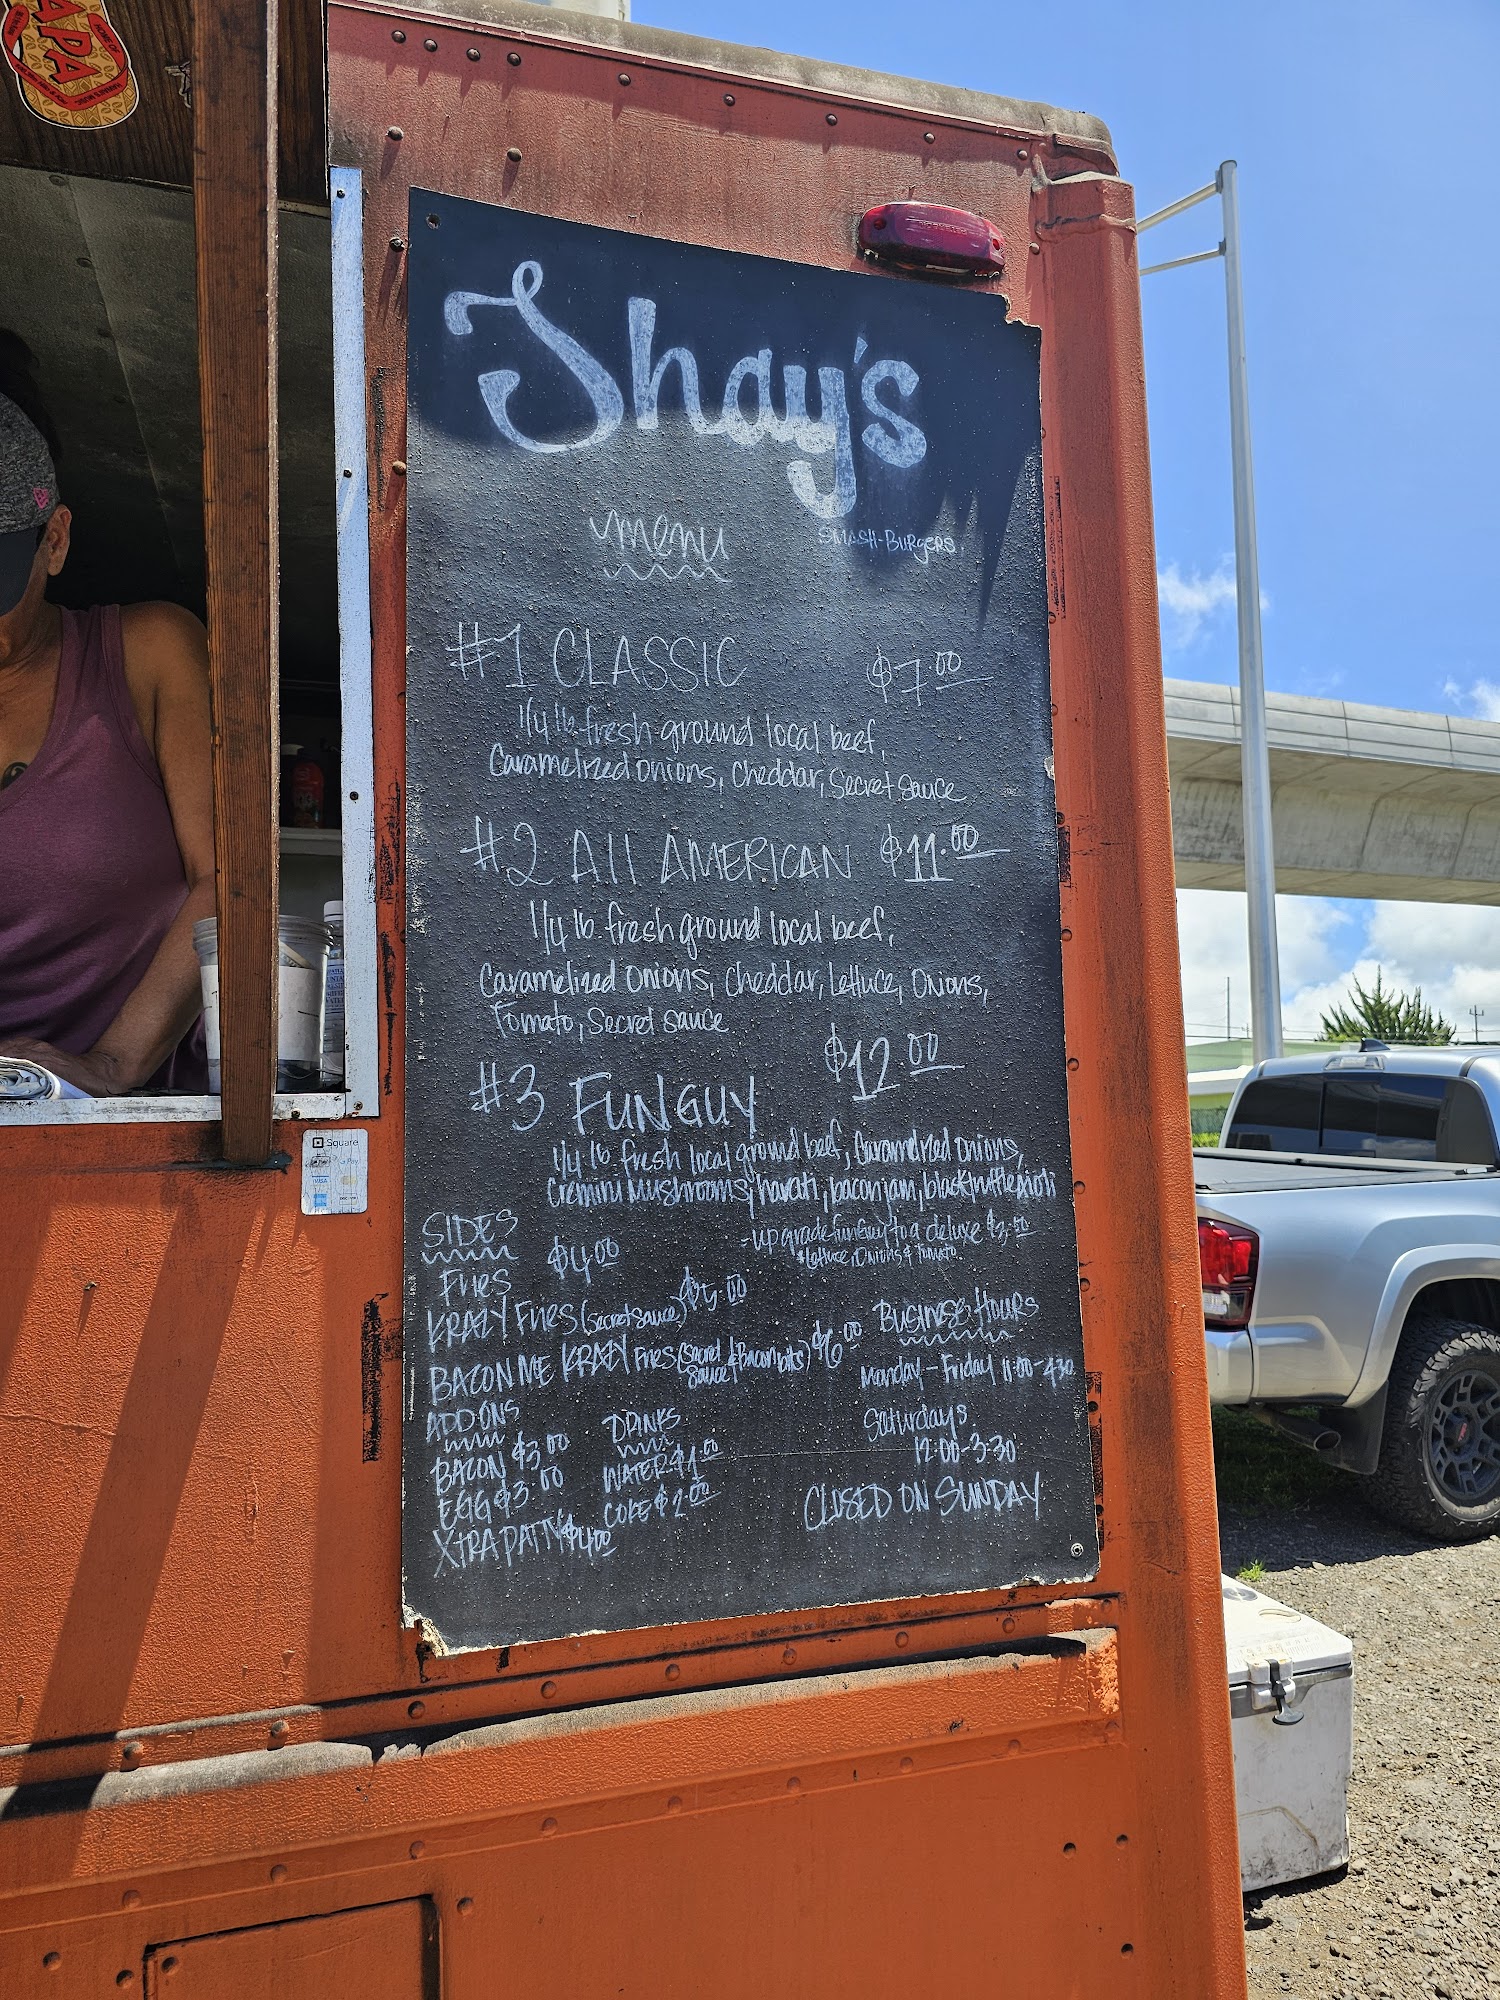 APA
HOME OF
Shay's
menu
SMASH-BURGERS
#1 CLASSIC $7.00
1/4 lb. fresh ground local beef,
Caramelized Onions, Cheddar, Secret Sauce
#2 All AMERICAN $11.00
1/4 lb. fresh ground local beef,
Caramelized Onions, Cheddar, Lettuce, Onions,
Tomato, Secret Sauce
#3 FUNGUY $12.00
1/4 lb. fresh local ground beef, Caramelized Onions,
Cremini Mushrooms, havarti, bacon jam, black truffle aioli
- upgrade funguy to a deluxe $3.00
*Lettuce, Onions & Tomato
SIDES
Fries $4.00
KRAZY Fries (secret sauce) $5.00
BACON ME KRAZY Fries (Secret Sauce & Bacon bits) $6.00
ADD ONS
BACON $3.00
EGG $3.00
XTRA PATTY $4.00
DRINKS
WATER $1.00
COKE $2.00
Business Hours
Monday - Friday 11:00-4:30
Saturdays
12:00-3:30
CLOSED ON SUNDAY
Square
G Pay
VISA